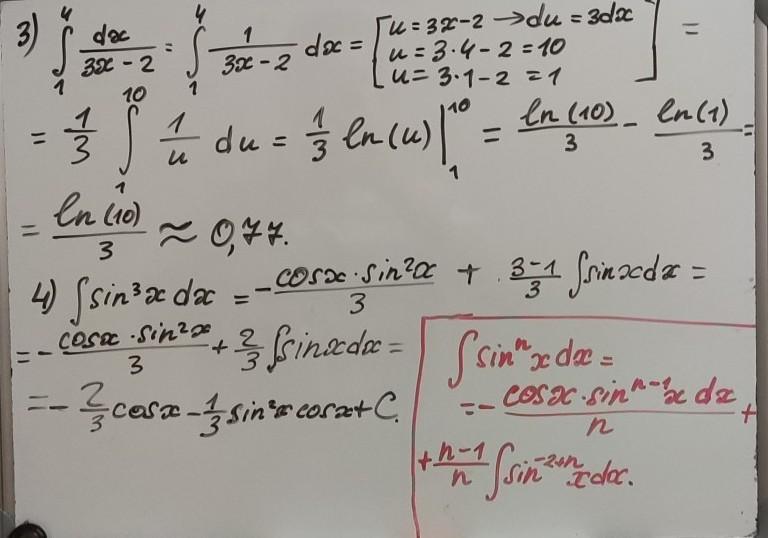 3) ∫₁⁴ dx/(3x-2) = ∫₁⁴ 1/(3x-2) dx = [u = 3x-2 → du = 3dx
u = 3·4-2 = 10
u = 3·1-2 = 1] =
= 1/3 ∫₁¹⁰ 1/u du = 1/3 ln(u)|₁¹⁰ = ln(10)/3 - ln(1)/3 =
= ln(10)/3 ≈ 0,77.
4) ∫sin³x dx = -cosx·sin²x/3 + (3-1)/3 ∫sinxdx =
= -cosx·sin²x/3 + 2/3 ∫sinxdx =
= -2/3 cosx - 1/3 sin²x cosx + C.
∫sinⁿxdx =
= -cosx·sinⁿ⁻¹x dx/n +
+ (n-1)/n ∫sin⁻²⁺ⁿxdx.